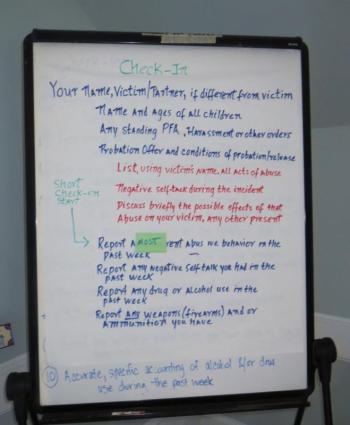 Check-In
Your Name, Victim/Partner, if different from victim
Name and Ages of all children
Any Standing PFA, Harassment or other orders
Probation Offier and conditions of probation/release
List, using victim's name, all acts of abuse
Negative self-talk during the incident
Discuss briefly the possible effects of that
Abuse on your victim, any other present
Short
Check-in
Start
Report a MOST rent abus ve behavior in the
past week
Report Any negative self talk you had in the
past week
Report Any drug or alcohol use in the
past week
Report Any weapons (firearms) and or
Ammunition you have
10 Accurate, specific accounting of alcohol &/or drug
use during the past week